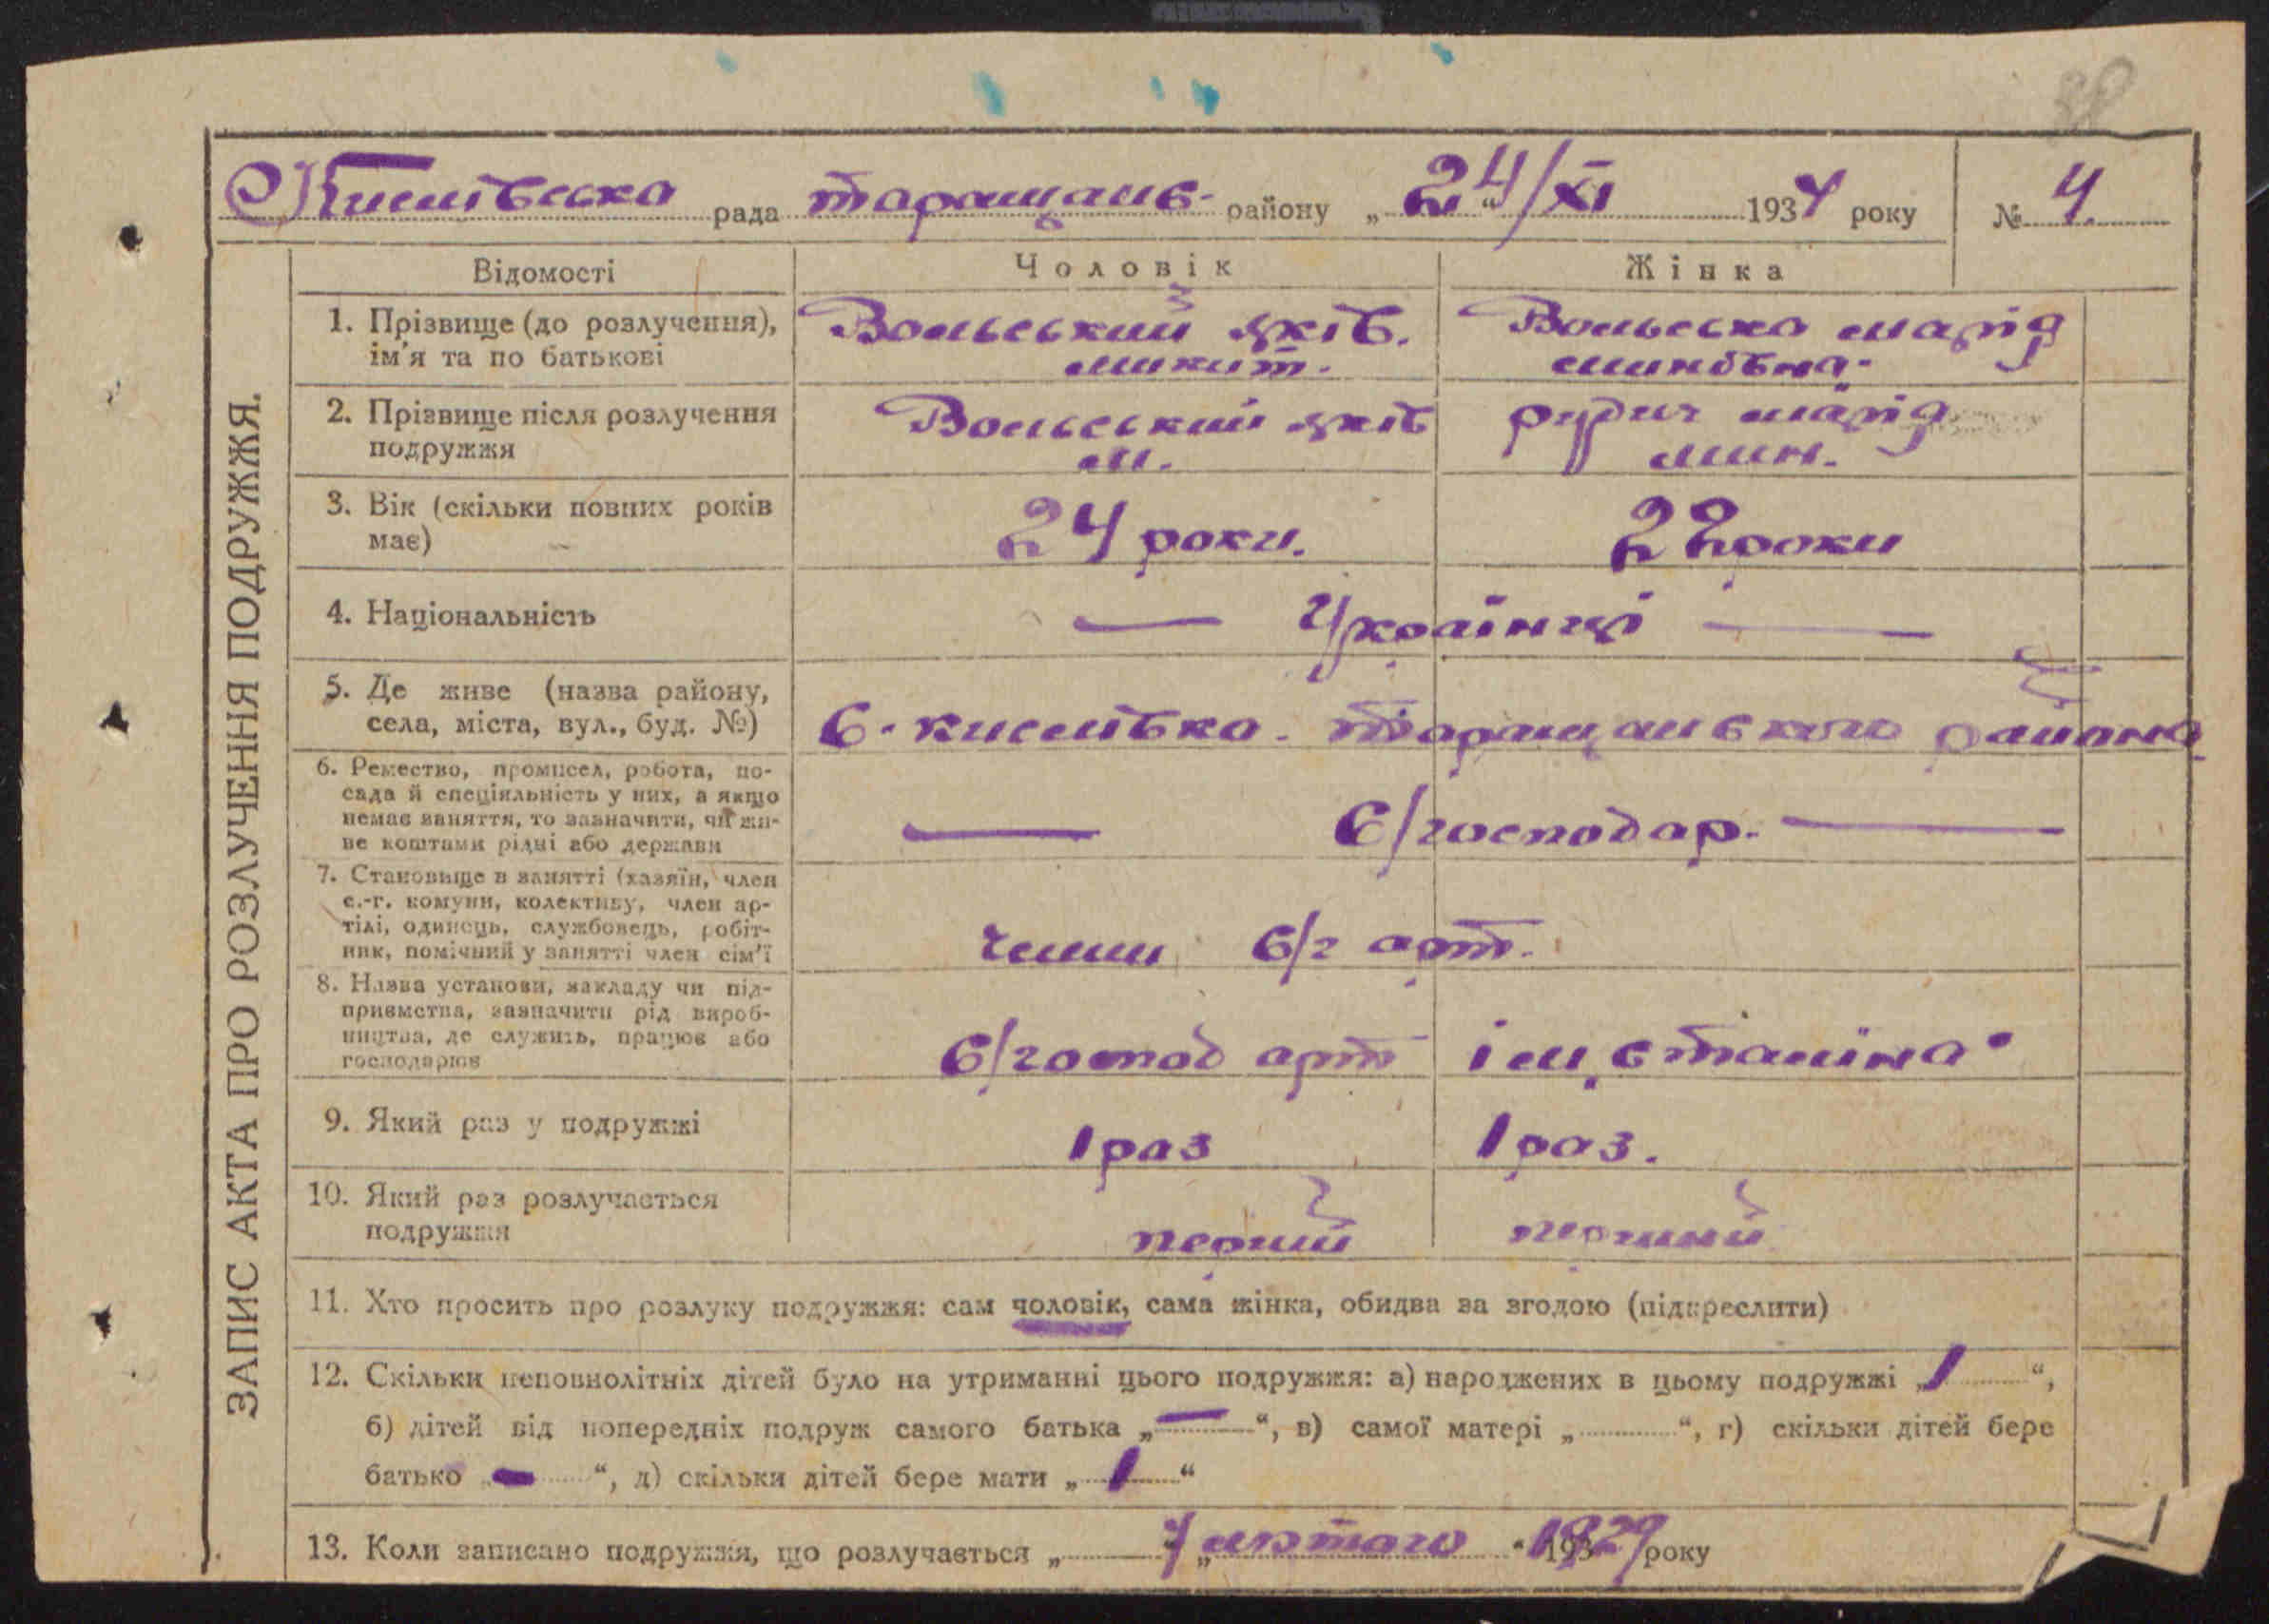 Кислівська рада таращанс. району „24/XI“ 1934 року № 4.
ЗАПИС АКТА ПРО РОЗЛУЧЕННЯ ПОДРУЖЖЯ.
Відомості Чоловік Жінка
1. Прізвище (до розлучення), Вольський яків. Вольська марія
ім'я та по батькові микит. миновна.
2. Прізвище після розлучення Вольський яків рудич марія
подружжя М. мин.
3. Вік (скільки повних років 24 роки. 22 роки
має)
4. Національність — Українці —
5. Де живе (назва району,
села, міста, вул., буд. №) с. кислівка. таращанського района
6. Ремество, промисел, робота, по-
сада й спеціяльність у них, а якщо
немає заняття, то зазначити, чи жи- — С/господар. —
ве коштами рідні або держави
7. Становище в занятті (хазяїн, член
с.-г. комуни, колективу, член ар-
тілі, одинець, службовець, робіт- члени с/г арт.
ник, помічний у занятті член сім'ї
8. Назва установи, закладу чи під-
приємства, зазначити рід вироб-
ництва, де служить, працює або С/господ арт ім. сталіна
господарює
9. Який раз у подружжі 1 раз 1 раз.
10. Який раз розлучається
подружжя перший перший
11. Хто просить про розлуку подружжя: сам чоловік, сама жінка, обидва за згодою (підкреслити)
12. Скільки неповнолітніх дітей було на утриманні цього подружжя: а) народжених в цьому подружжі „1“,
б) дітей від попередніх подруж самого батька „—“, в) самої матері „ “, г) скільки дітей бере
батько „—“, д) скільки дітей бере мати „1“
13. Коли записано подружжя, що розлучається „ “ лютого 1929 року